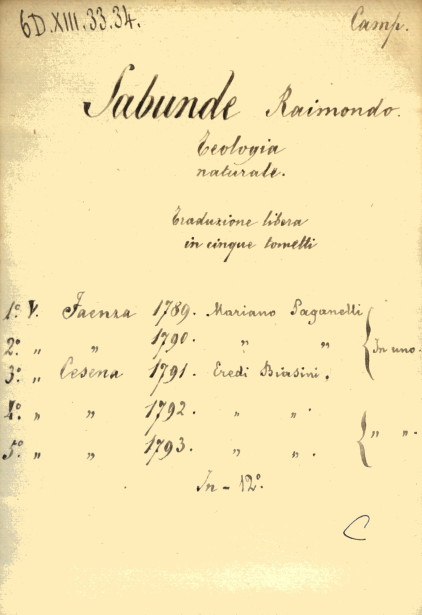 6D.XIII.33.34.
Camp.
Sabunde Raimondo.
Teologia
naturale.
Traduzione libera
in cinque tometti
1º. V. Faenza 1789. Mariano Paganelli
2º. „ „ 1790. „ „
In uno.
3º. „ Cesena 1791. Eredi Biasini.
4º. „ „ 1792. „ „.
„ „.
5º. „ „ 1793. „ „.
In - 12º.
C